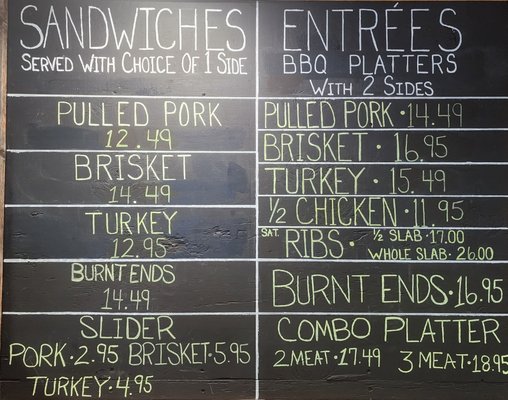 SANDWICHES
SERVED WITH CHOICE OF 1 SIDE
PULLED PORK
12.49
BRISKET
14.49
TURKEY
12.95
BURNT ENDS
14.49
SLIDER
PORK • 2.95 BRISKET • 5.95
TURKEY • 4.95
ENTRÉES
BBQ PLATTERS
WITH 2 SIDES
PULLED PORK • 14.49
BRISKET • 16.95
TURKEY • 15.49
½ CHICKEN • 11.95
SAT. RIBS • ½ SLAB • 17.00
WHOLE SLAB • 26.00
BURNT ENDS • 16.95
COMBO PLATTER
2 MEAT • 17.49 3 MEAT • 18.95